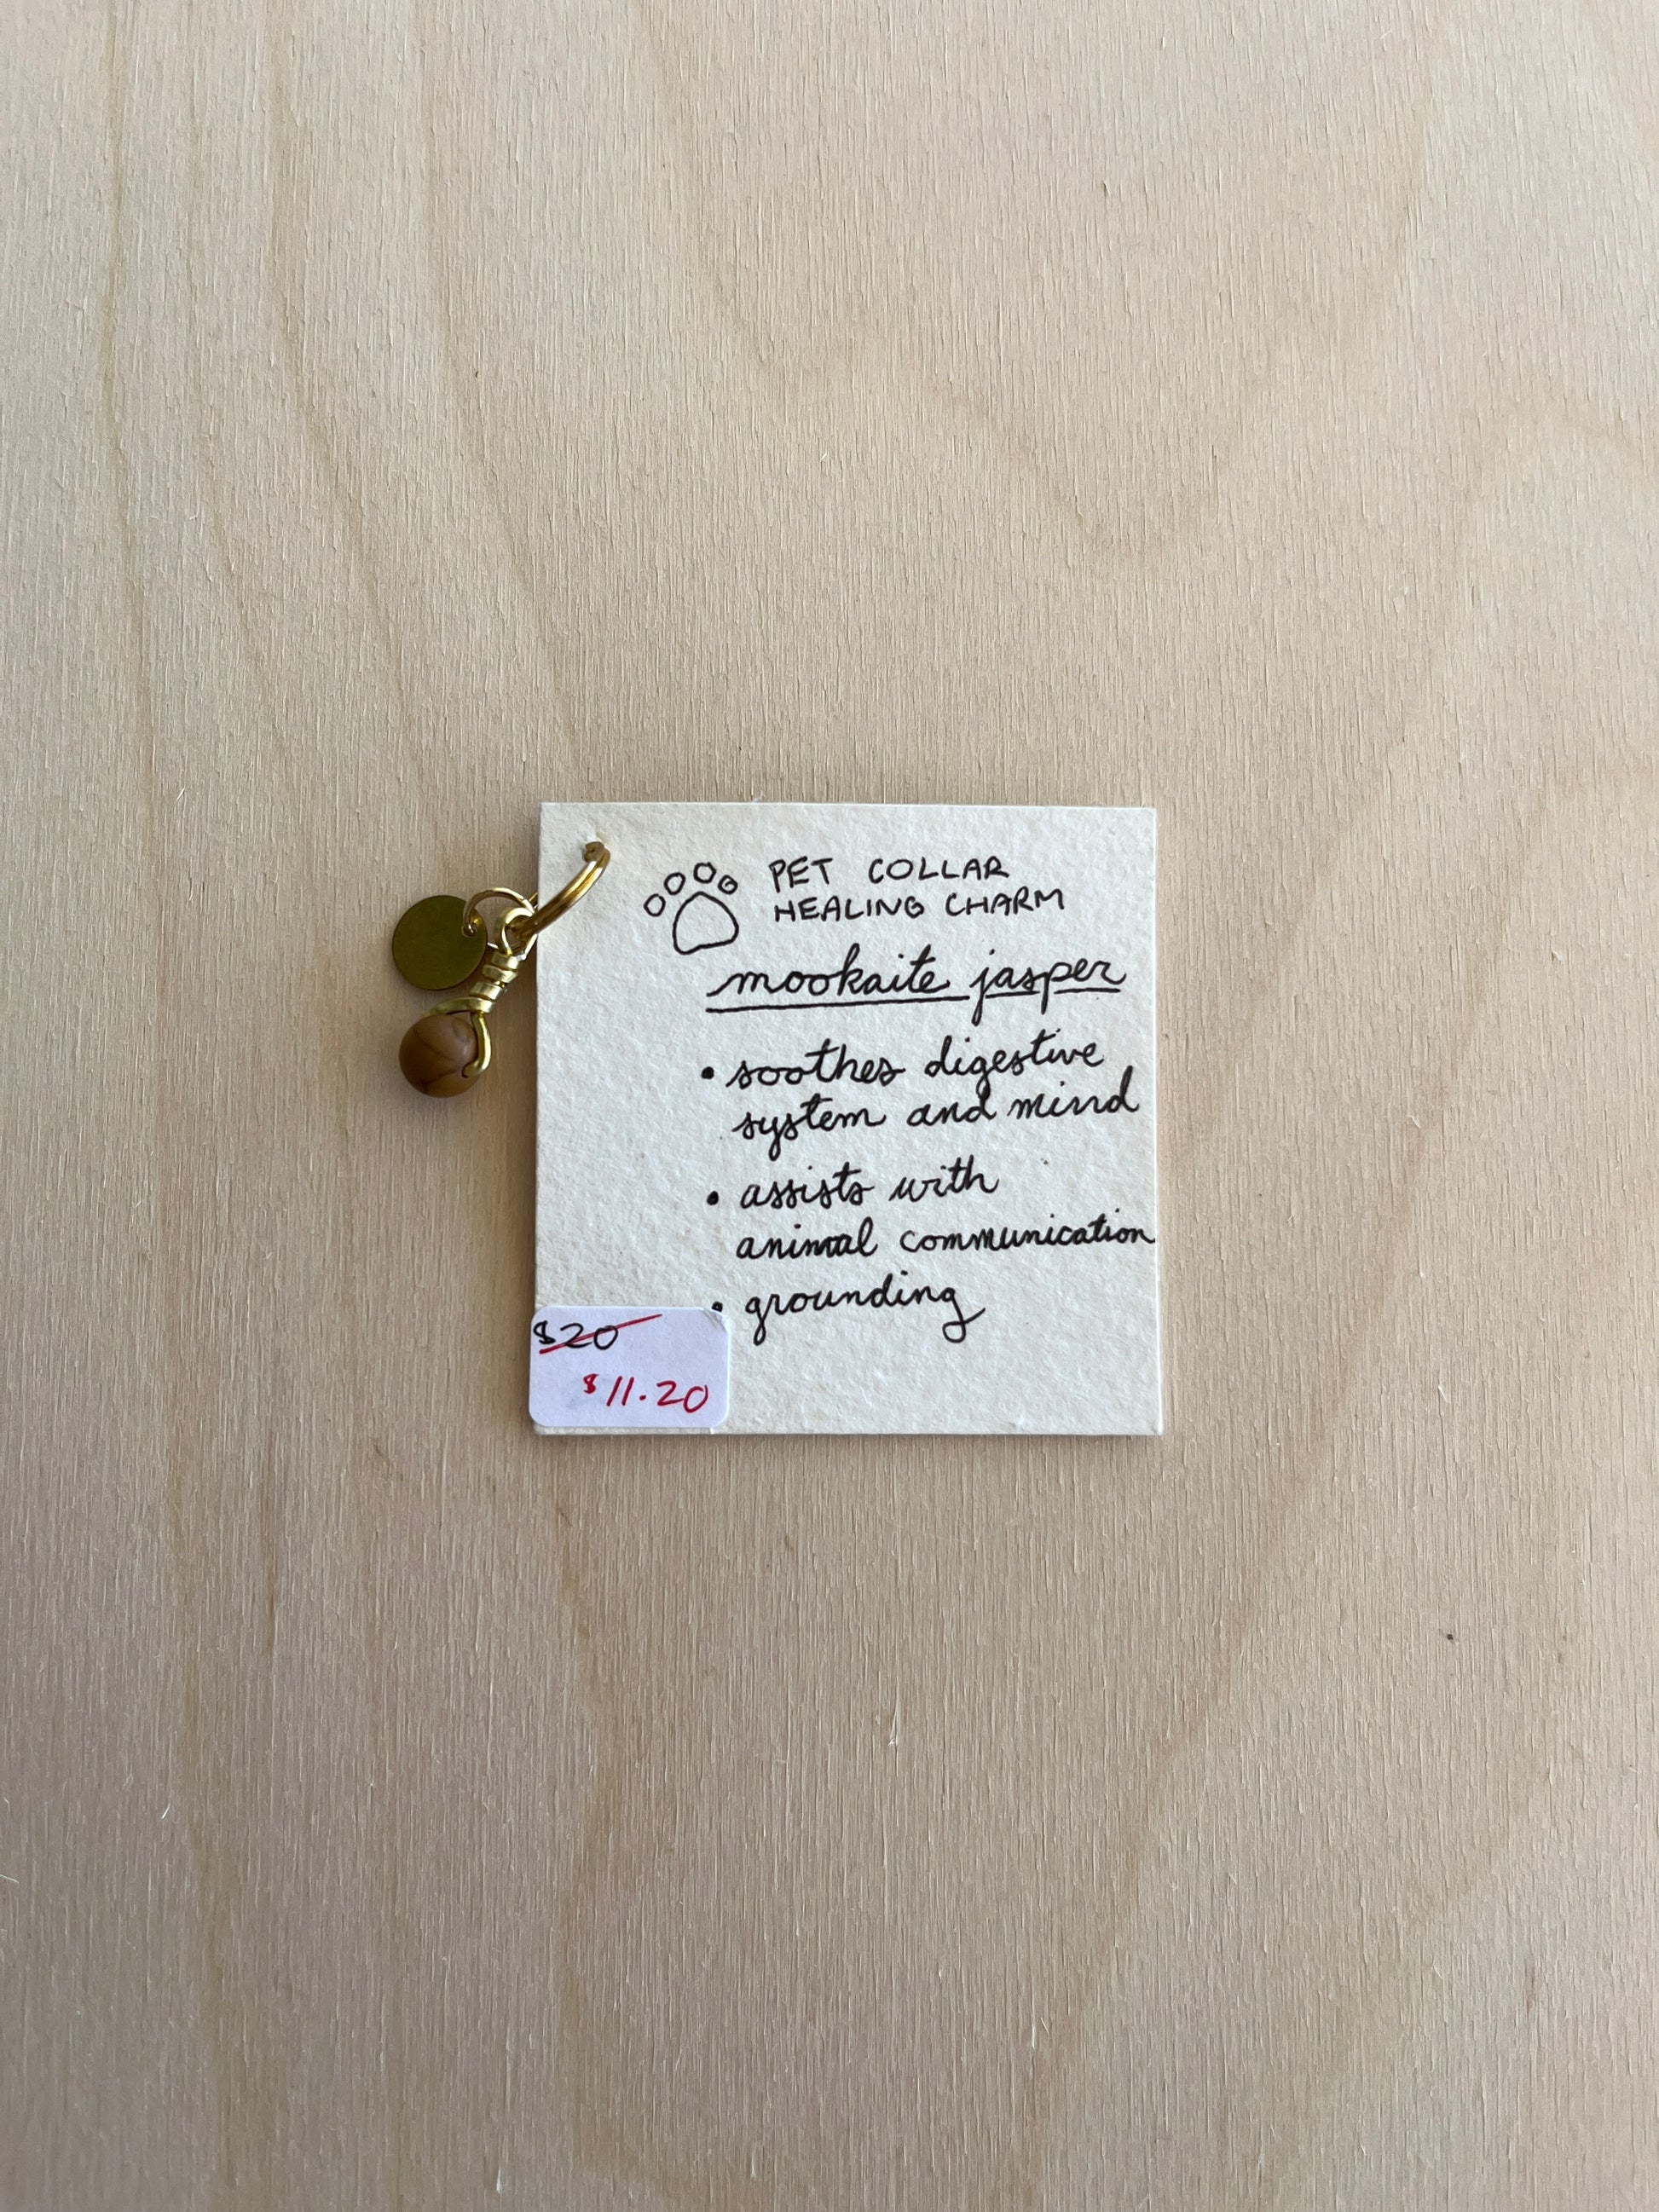 PET COLLAR
HEALING CHARM
mookaite jasper
• soothes digestive
system and mind
• assists with
animal communication
• grounding
$20
$11.20